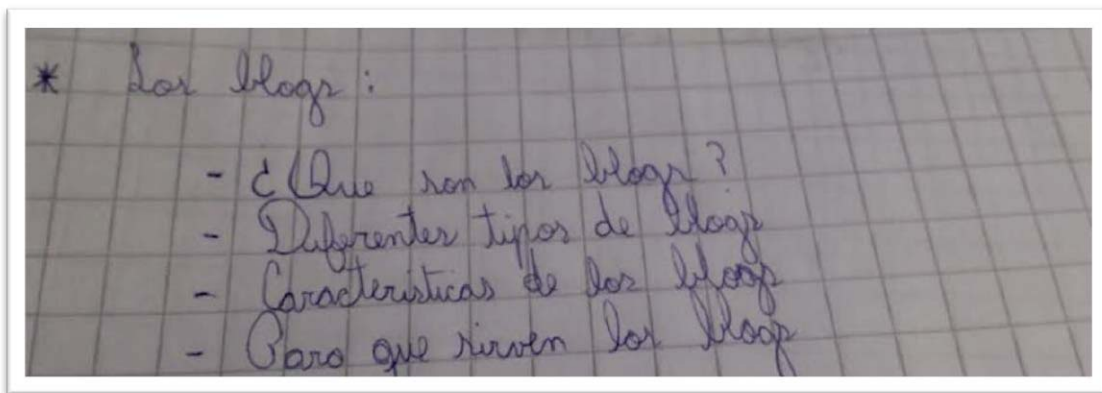 * Los blogs :
- ¿Que son los blogs?
- Diferentes tipos de blogs
- Caracteristicas de los blogs
- Para que sirven los blogs